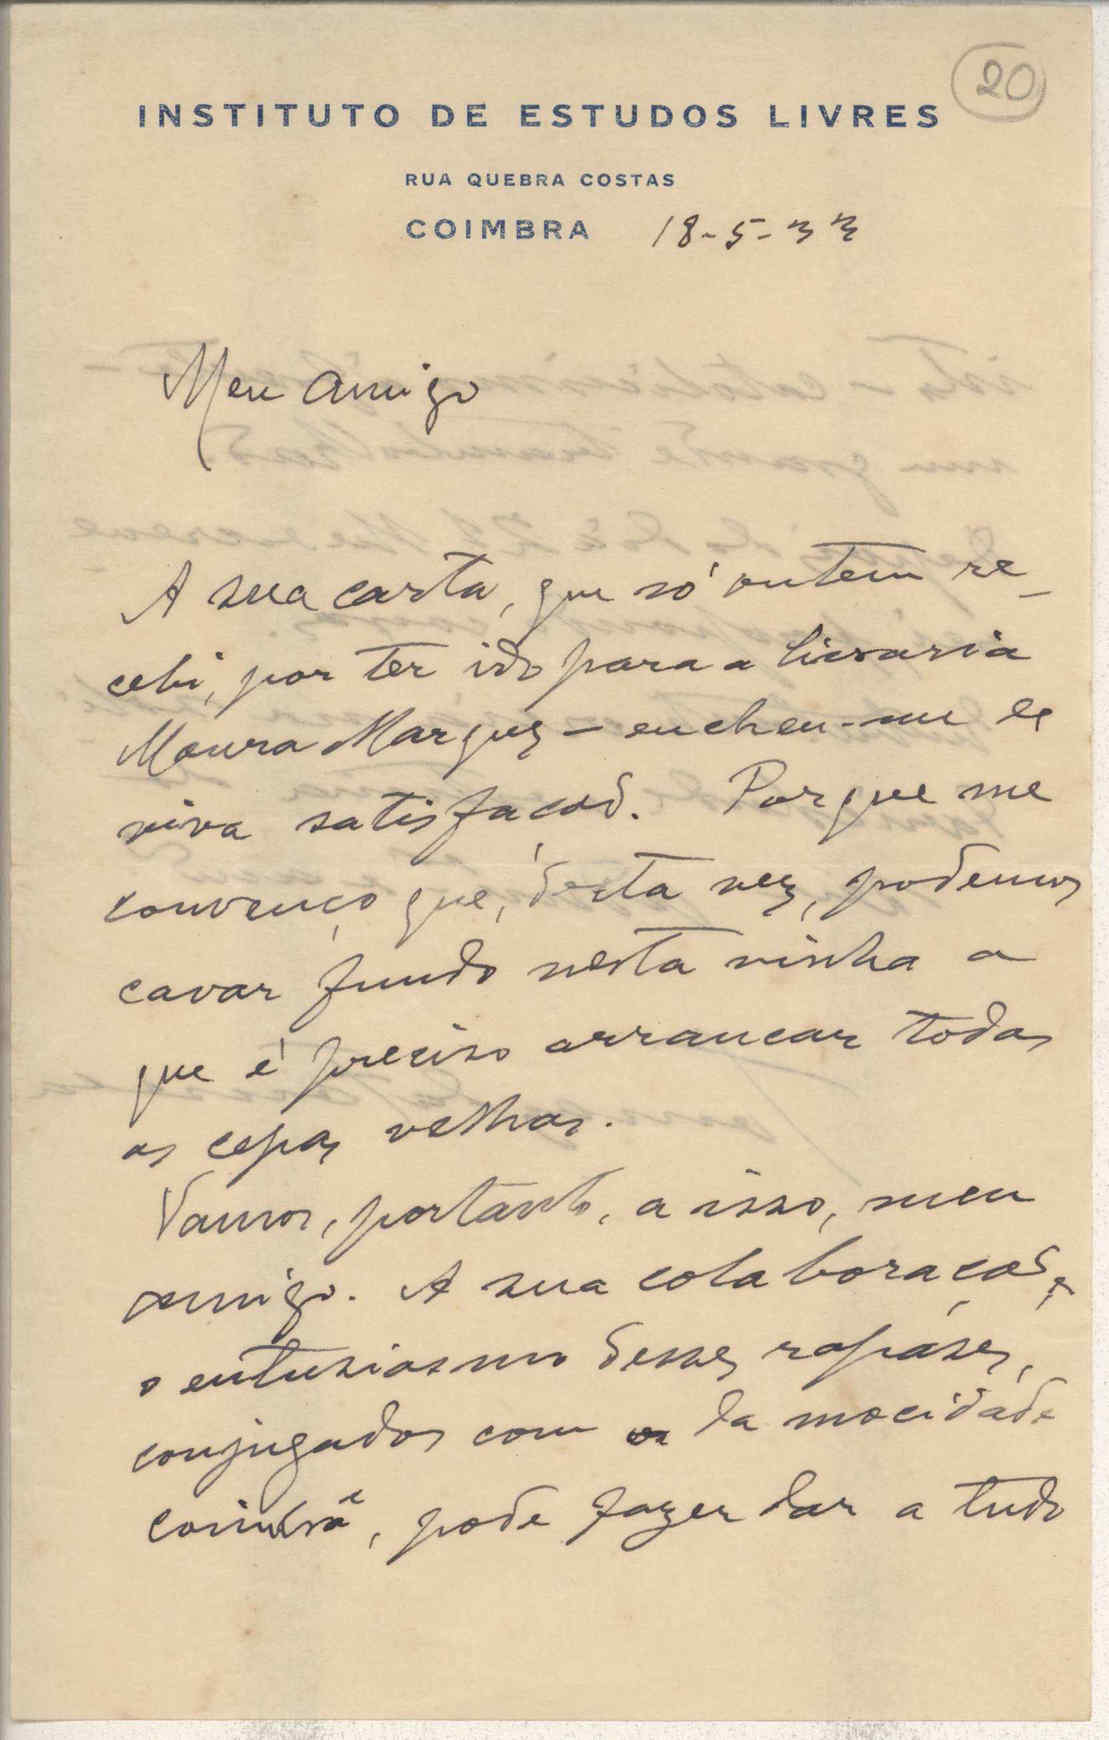 20
INSTITUTO DE ESTUDOS LIVRES
RUA QUEBRA COSTAS
COIMBRA 18-5-33
Meu amigo
A sua carta, que só ontem re-
cebi, por ter ido para a livraria
Moura Marques – encheu-me de
viva satisfação. Porque me
convenço que, desta vez, podemos
cavar fundo nesta vinha a
que é preciso arrancar todas
as cepas velhas.
Vamos, portanto, a isso, meu
amigo. A sua colaboração,
o entusiasmo desses rapases,
conjugados com da mocidade
coimbrã, pode fazer dar a tudo